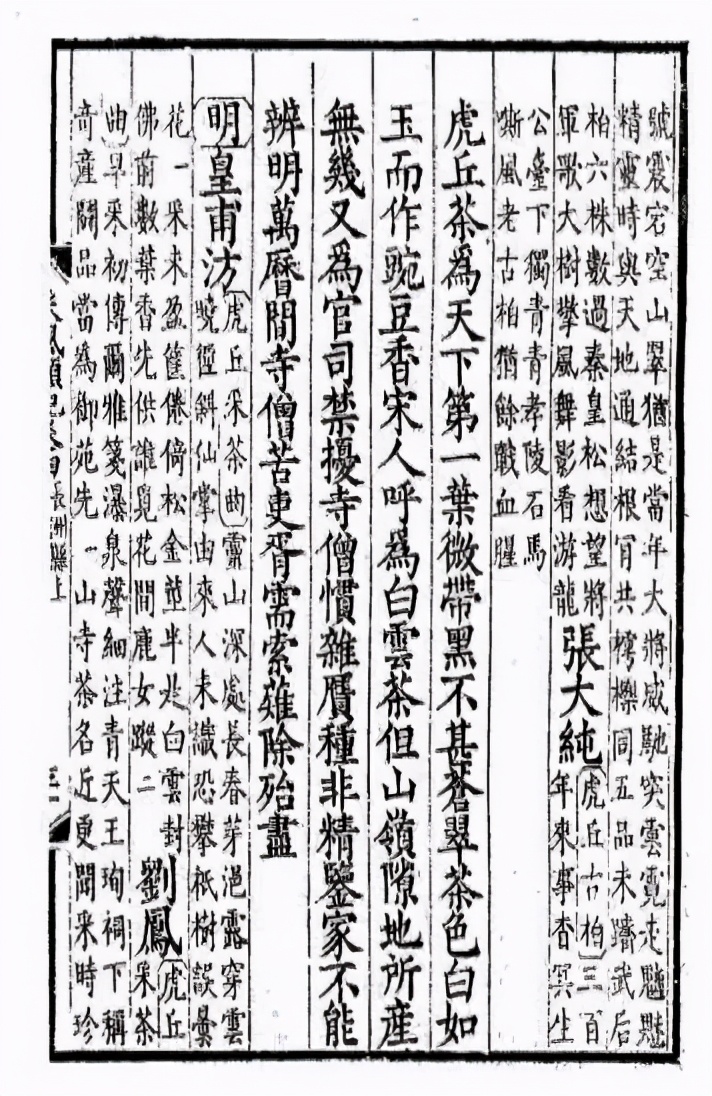 號震宕空山翠猶是當年大將威馳突雲霓走魑魅
精靈時與天地通結根肯共樗櫟同五品未躋武后
柏六株數過秦皇松想望將
軍歌大樹擎風舞影看游龍
張大純
虎丘古柏三百
年來事杳冥生
公臺下獨青青孝陵石馬
嘶風老古柏猶餘戰血腥
虎丘茶為天下第一葉微帶黑不甚蒼翠茶色白如
玉而作豌豆香宋人呼為白雲茶但山嶺隙地所產
無幾又為官司禁擾寺僧慣雜贗種非精鑒家不能
辨明萬曆間寺僧苦吏胥需索薙除殆盡
明皇甫汸
虎丘采茶曲靈山深處長春芽浥露穿雲
曉徑斜仙掌由來人未識恐攀祇樹誤曇
花一采未盈筐倦倚松金莖半是白雲封
佛前數葉香先供誰覓花間鹿女蹤二
劉鳳
虎丘
采茶
曲早采初傳爾雅箋瀑泉聲細注青天王珣祠下稱
奇產鬪品當為御苑先一山寺茶名近更聞采時珍
采風類記卷四 長洲縣上